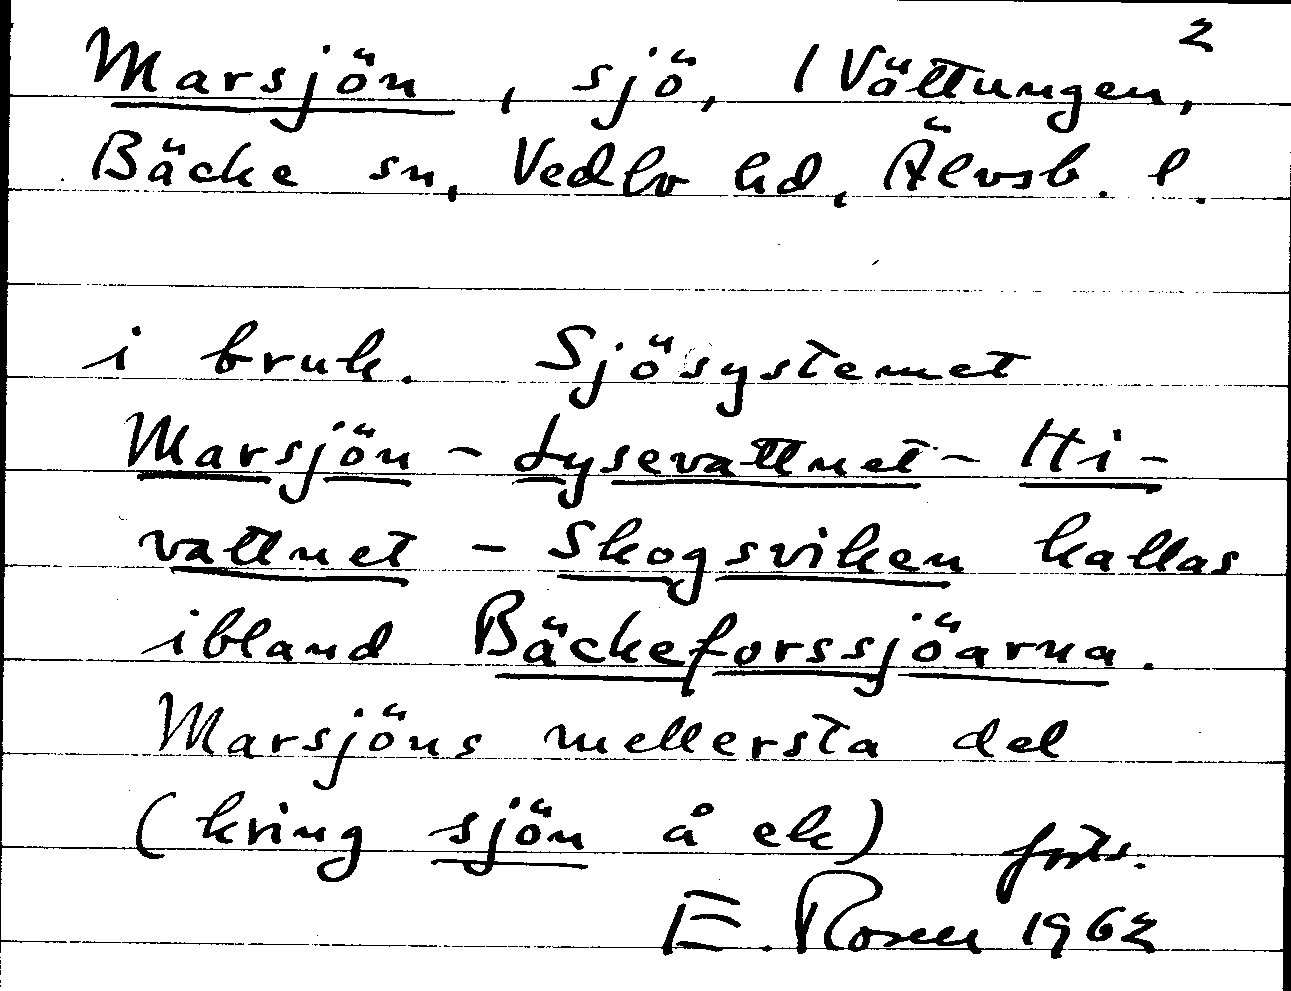 2
Marsjön, sjö, (Vättungen,
Bäcke sn, Vedbo hd, Älvsb. l.
i bruk. Sjösystemet
Marsjön - Lysevattnet - Hi-
vattnet - Skogsviken kallas
ibland Bäckeforssjöarna.
Marsjöns mellersta del
(kring sjön å ek) forts.
E. Rosen 1962